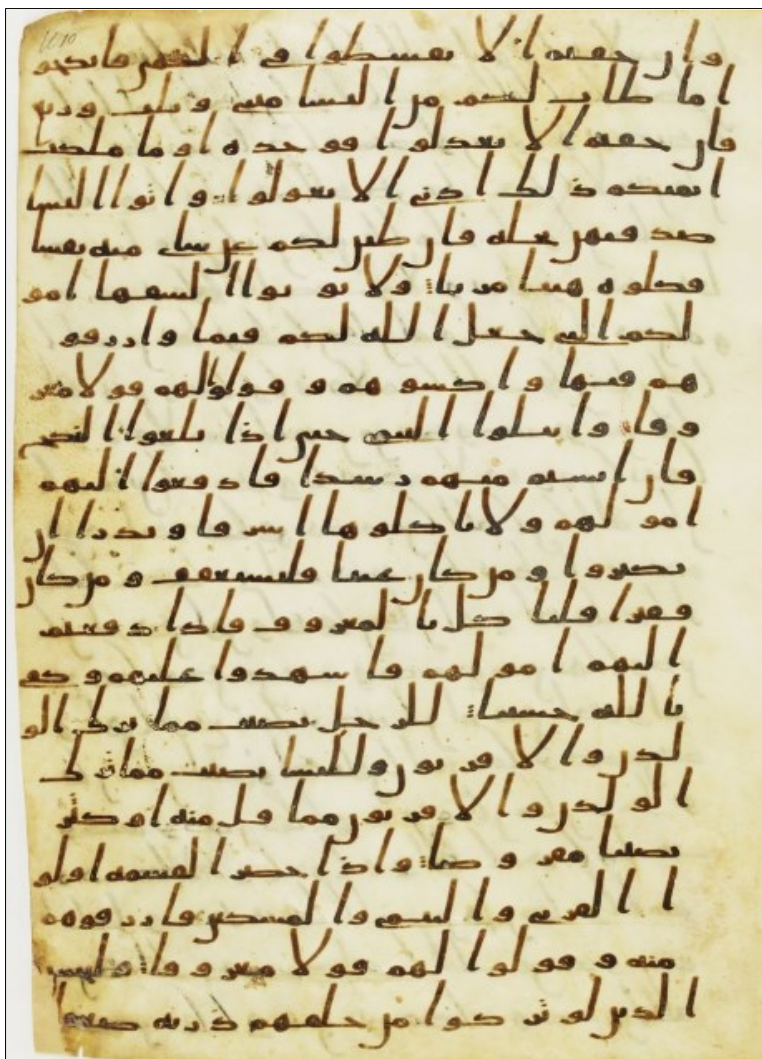 وان خفتم الا تقسطوا في اليتمى فانكحو
ا ما طاب لكم من النسا مثنى وثلث وربع
فان خفتم الا تعدلوا فوحده او ما ملكت
ايمنكم ذلك ادنى الا تعولوا واتوا النسا
صدقتهن نحله فان طبن لكم عن شاى منه نفسا
فكلوه هنيا مريا ولا توتوا السفها امو
لكم التي جعل الله لكم قيما وارزقو
هم فيها واكسوهم وقولوا لهم قولا معر
وفا وابتلوا اليتمى حتى اذا بلغوا النكح
فان انستم منهم رشدا فادفعوا اليهم
امولهم ولا تاكلوها اسرفا وبدرا ان
يكبروا ومن كان غنيا فليستعفف ومن كان
فقيرا فلياكل بالمعروف فاذا دفعتم
اليهم امولهم فاشهدوا عليهم وكفى
بالله حسيبا للرجل نصيب مما ترك الو
لدن والاقربون وللنسا نصيب مما ترك
الولدن والاقربون مما قل منه او كثر
نصيبا مفروضا واذا حضر القسمه اولو
ا القربى واليتمى والمسكين فارزقوهم
منه وقولوا لهم قولا معروفا وليخش
الذين لو تركوا من خلفهم ذريه ضعفا